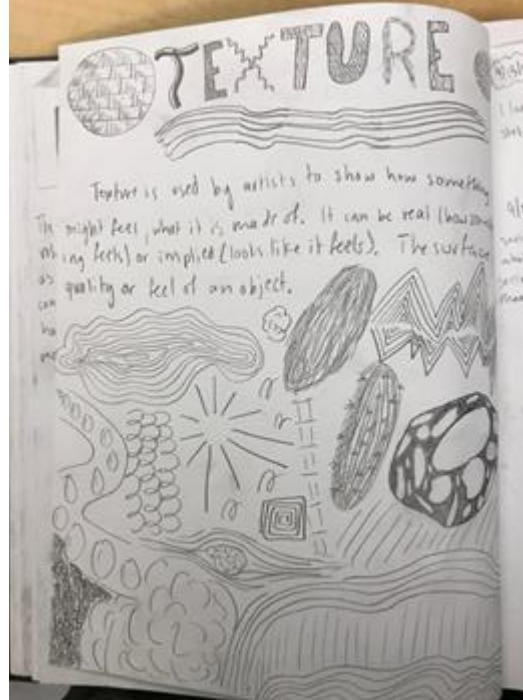 TEXTURE
Texture is used by artists to show how something
might feel, what it is made of. It can be real (how
ing feels) or implied (looks like it feels). The surface
quality or feel of an object.